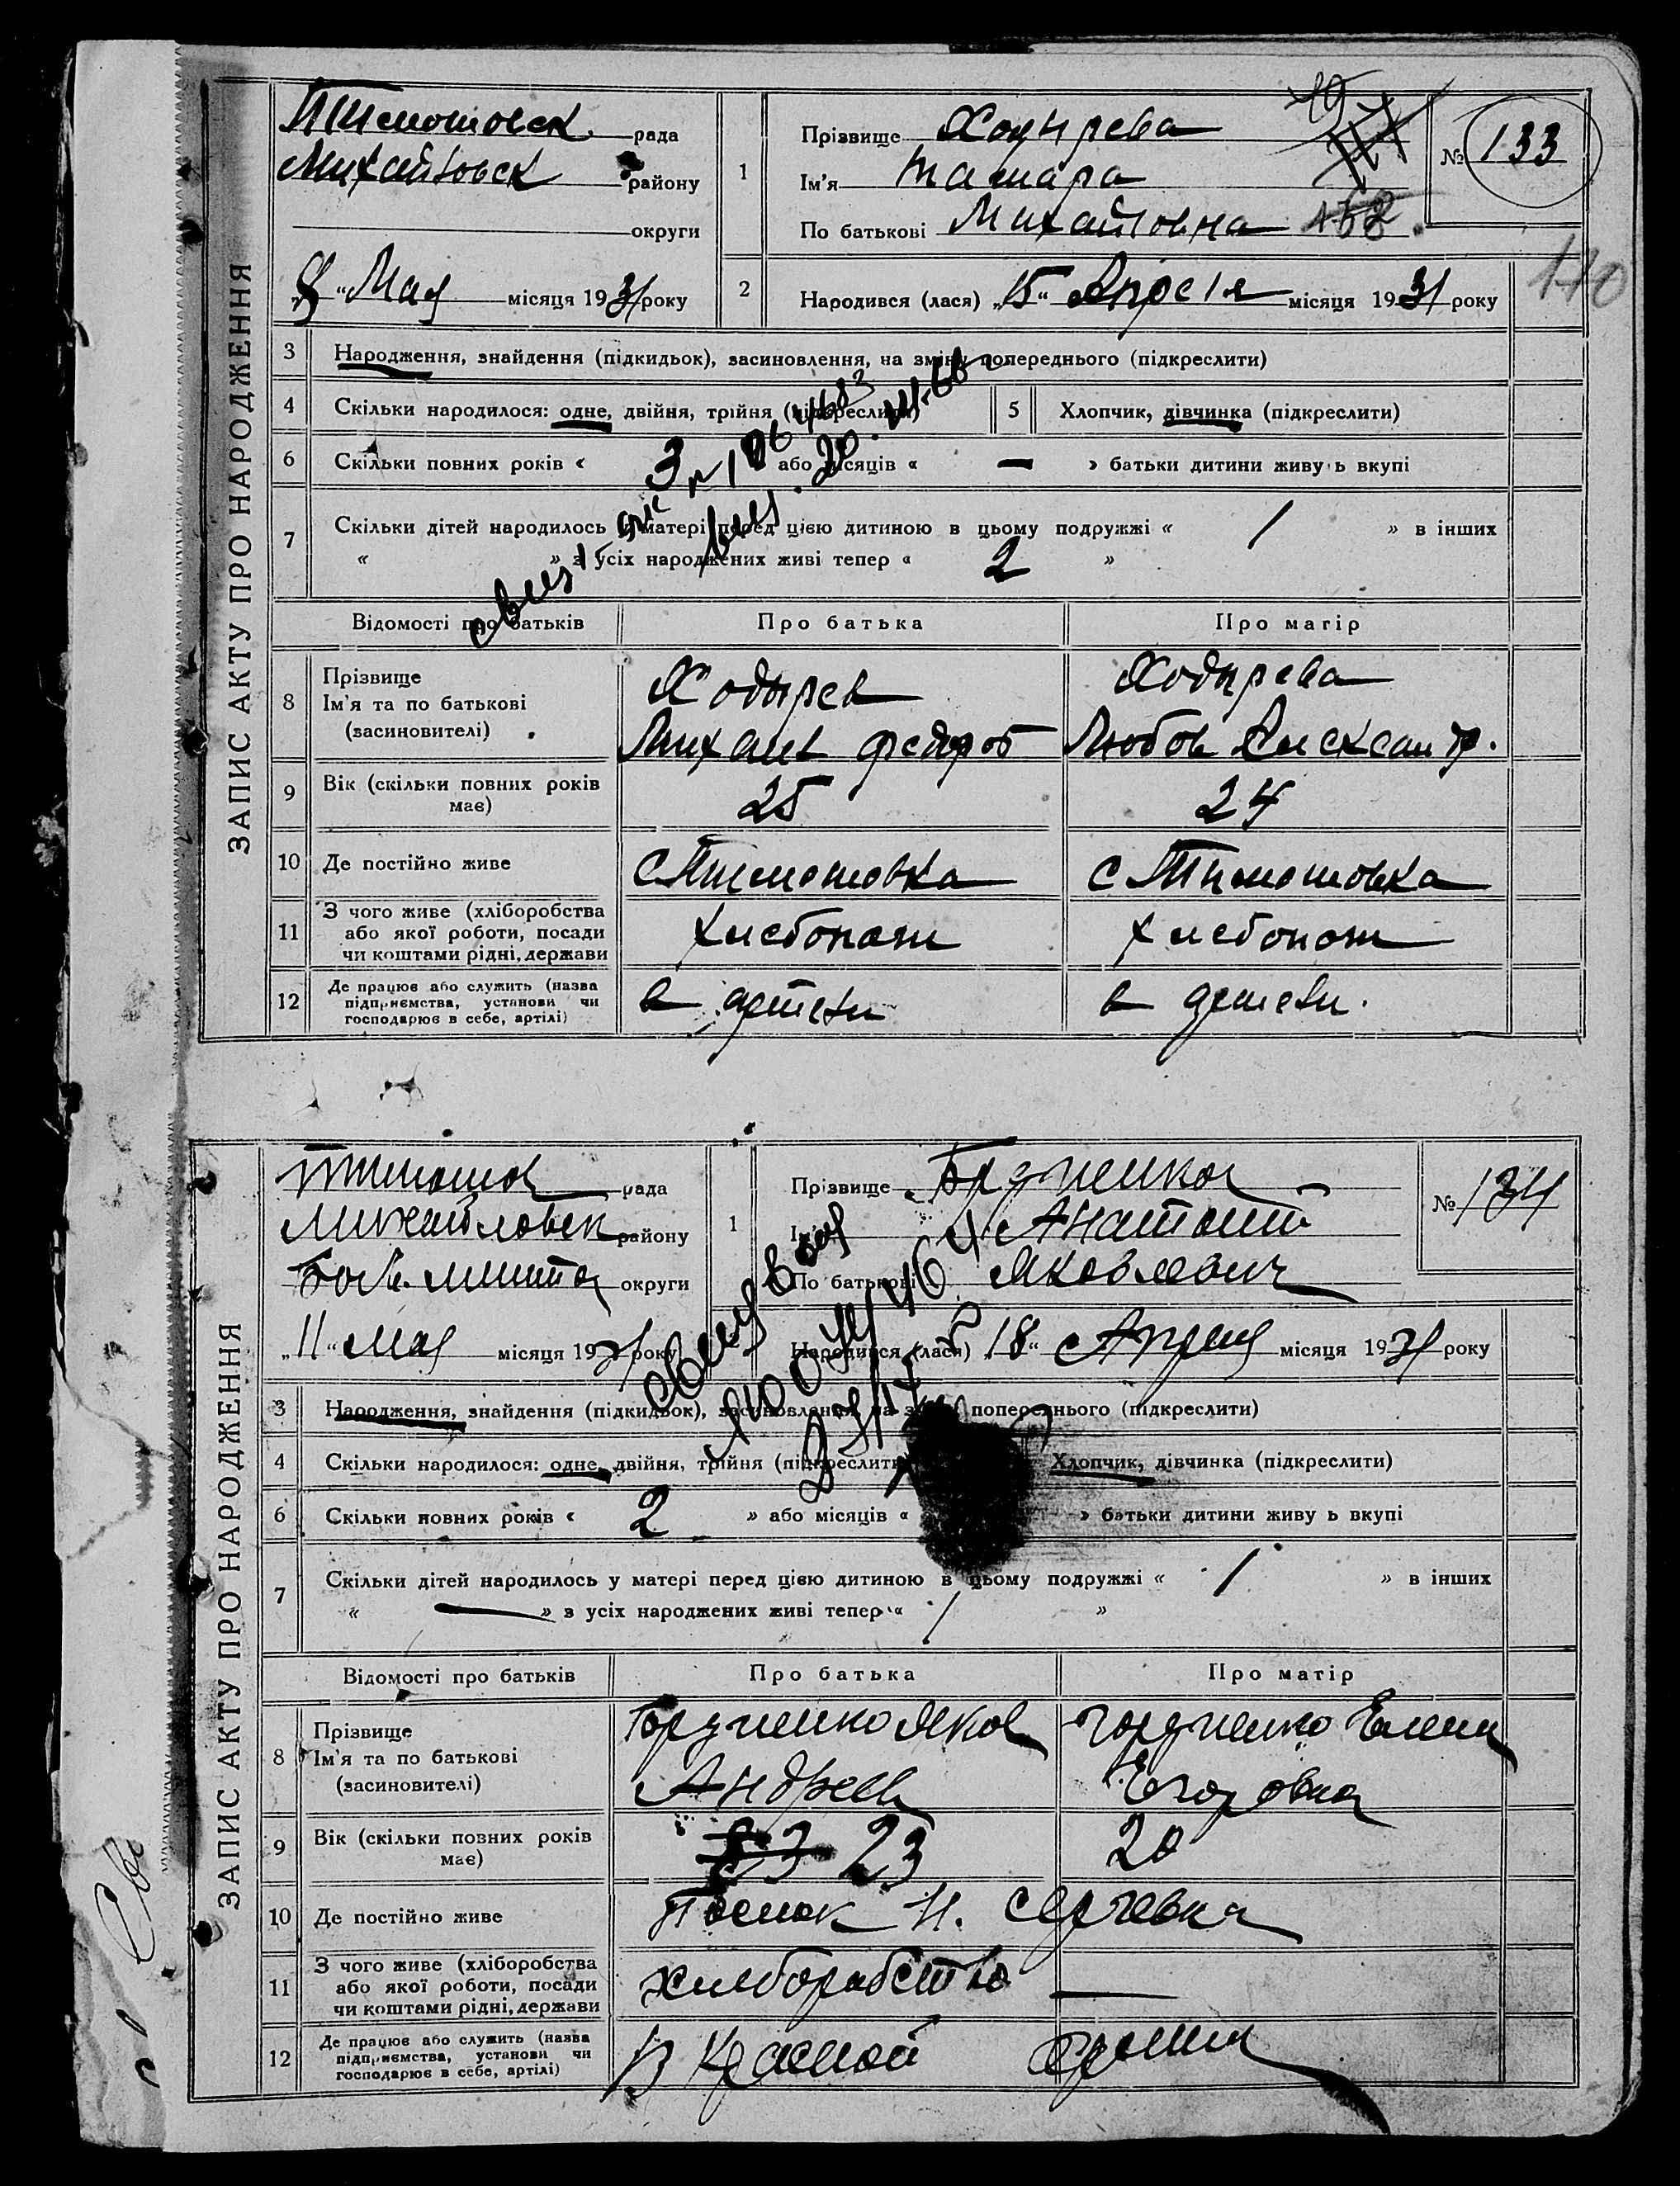 ЗАПИС АКТУ ПРО НАРОДЖЕННЯ
Тимошовск. рада
Михайловск району
округи
„8“ Мая місяця 1931 року
1
Прізвище Ходырева
Ім'я Тамара
По батькові Михайловна
№ 133
132
140
2 Народився (лася) „15“ Апреля місяця 1931 року
3 Народження, знайдення (підкидьок), засиновлення, на зміну попереднього (підкреслити)
4 Скільки народилося: одне, двійня, трійня (підкреслити) 5 Хлопчик, дівчинка (підкреслити)
6 Скільки повних років « 3 або місяців « — » батьки дитини живуть вкупі
7 Скільки дітей народилось у матері перед цією дитиною в цьому подружжі « 1 » в інших
« » з усіх народжених живі тепер « 2 »
Відомості про батьків Про батька Про матір
8 Прізвище Ім'я та по батькові (засновителі)
Ходырев Ходырева
Михаил Федоров Любов Александр.
9 Вік (скільки повних років має) 25 24
10 Де постійно живе с Тимошовка с Тимошовка
11 З чого живе (хліборобства або якої роботи, посади чи коштами рідні, держави хлебопаш хлебопаш
12 Де працює або служить (назва підприємства, установи чи господарює в себе, артілі) в артели в артели.
ЗАПИС АКТУ ПРО НАРОДЖЕННЯ
Тимошов рада
Михайловск району
округи
„11“ мая місяця 1931 року
1
Прізвище
Ім'я Анатолий
По батькові Яковлевич
№ 134
Народився (лася) „18“ Апреля місяця 1931 року
3 Народження, знайдення (підкидьок), засиновлення, на зміну попереднього (підкреслити)
4 Скільки народилося: одне, двійня, трійня (підкреслити) Хлопчик, дівчинка (підкреслити)
6 Скільки повних років « 2 » або місяців « » батьки дитини живуть вкупі
7 Скільки дітей народилось у матері перед цією дитиною в цьому подружжі « 1 » в інших
« — » з усіх народжених живі тепер « 1 »
Відомості про батьків Про батька Про матір
8 Прізвище Ім'я та по батькові (засиновителі)
Яков Елена
Андреев Егоровна
9 Вік (скільки повних років має) 23 20
10 Де постійно живе Поселок Н. Сергевка
11 З чого живе (хліборобства або якої роботи, посади чи коштами рідні, держави хлеборобство —
12 Де працює або служить (назва підприємства, установи чи господарює в себе, артілі) В Красной